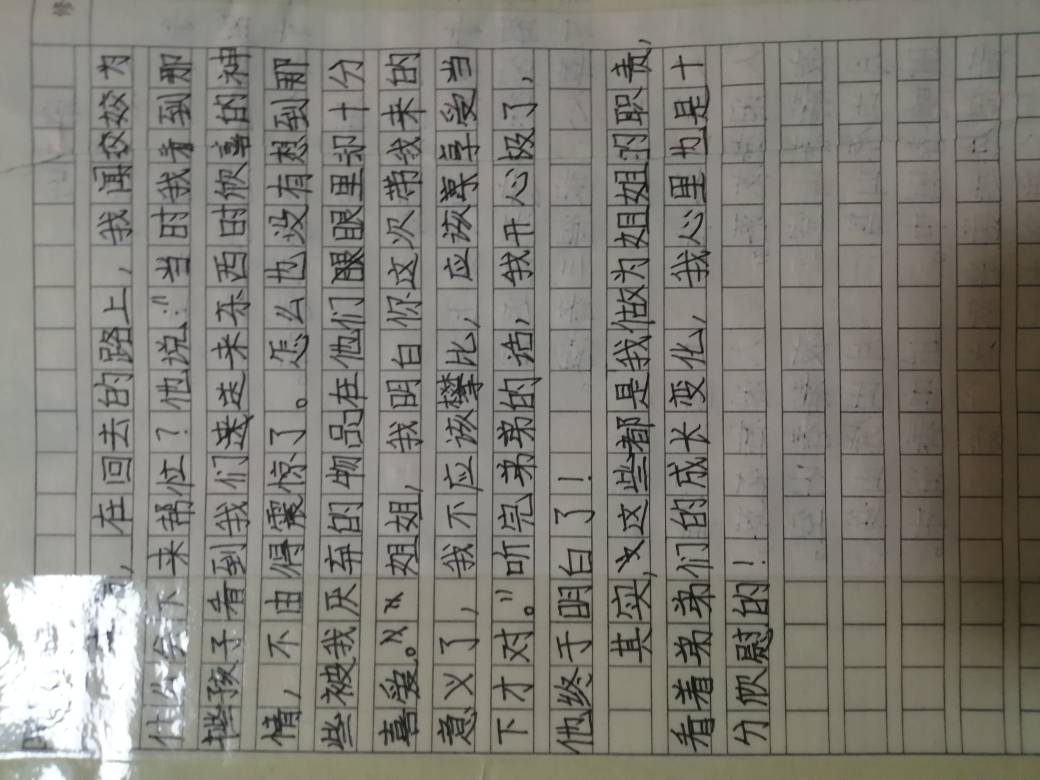 ，在回去的路上，我闻姣姣为
什么会下来帮忙？他说：“当时我看到那
些孩子看到我们送来东西时欣喜的神
情，不由得震惊了。怎么也没有想到那
些被我厌弃的物品在他们眼里却十分
喜爱。姐姐，我明白你这次带我来的
意义了，我不应该攀比，应该享受当
下才对。”听完弟弟的话，我开心极了，
他终于明白了！
其实，这些都是我做为姐姐的职责，
看着弟弟们的成长变化，我心里也是十
分欣慰的！